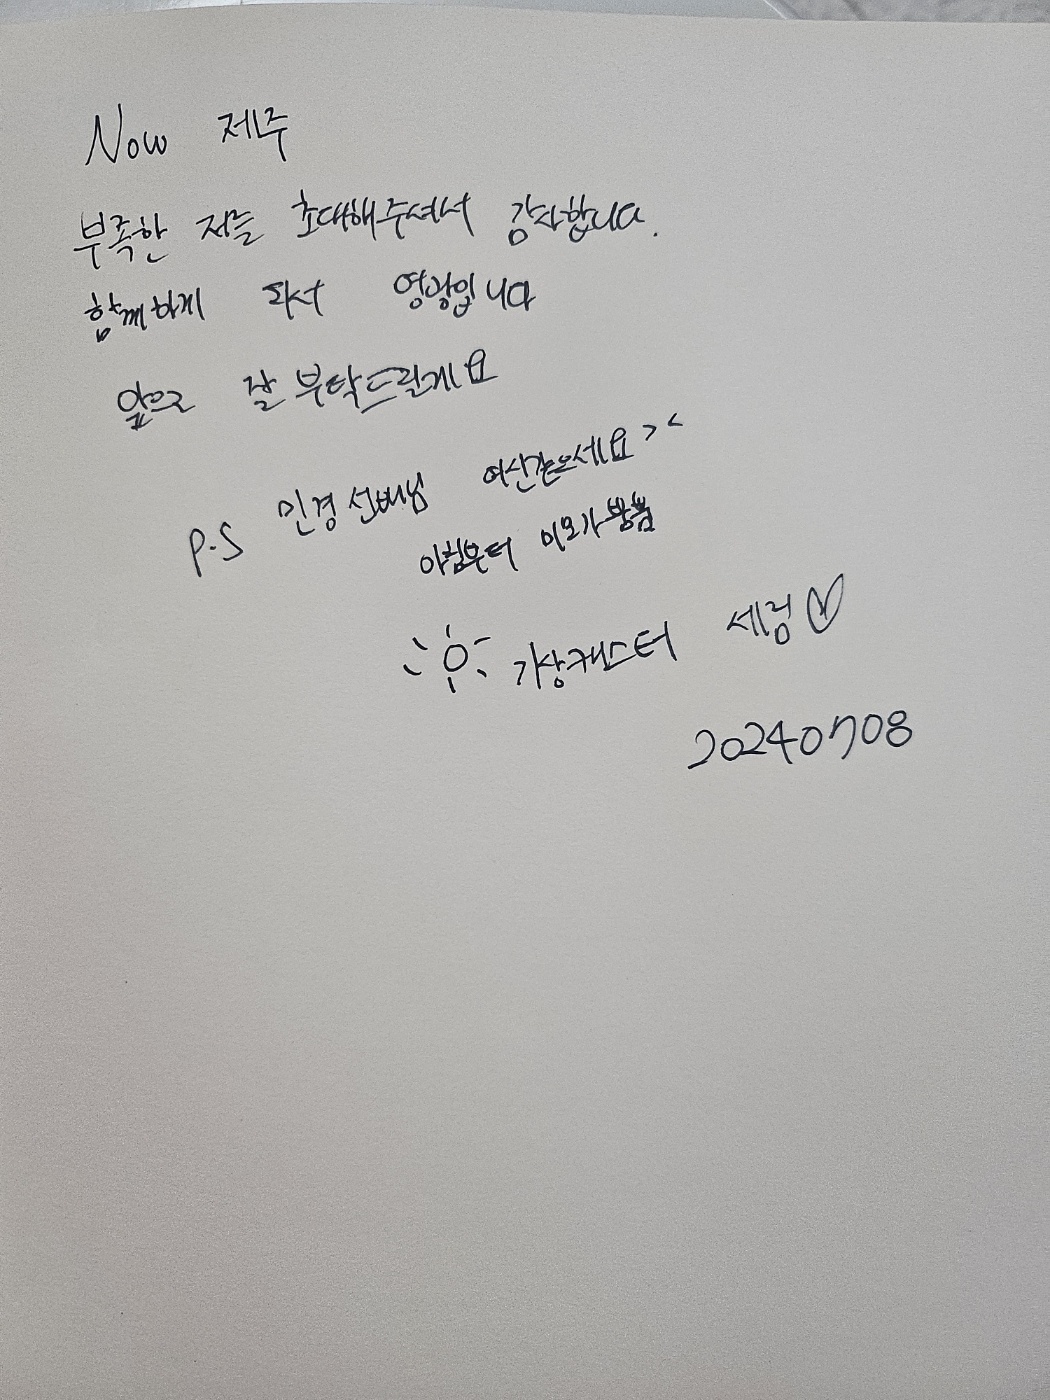 Now 제주
부족한 저를 초대해주셔서 감사합니다.
함께하게 돼서 영광입니다
앞으로 잘 부탁드릴게요
P.S 민경 선배님 여신같으세요 > <
아침부터 미모가 뿜뿜
기상캐스터 세림
20240708